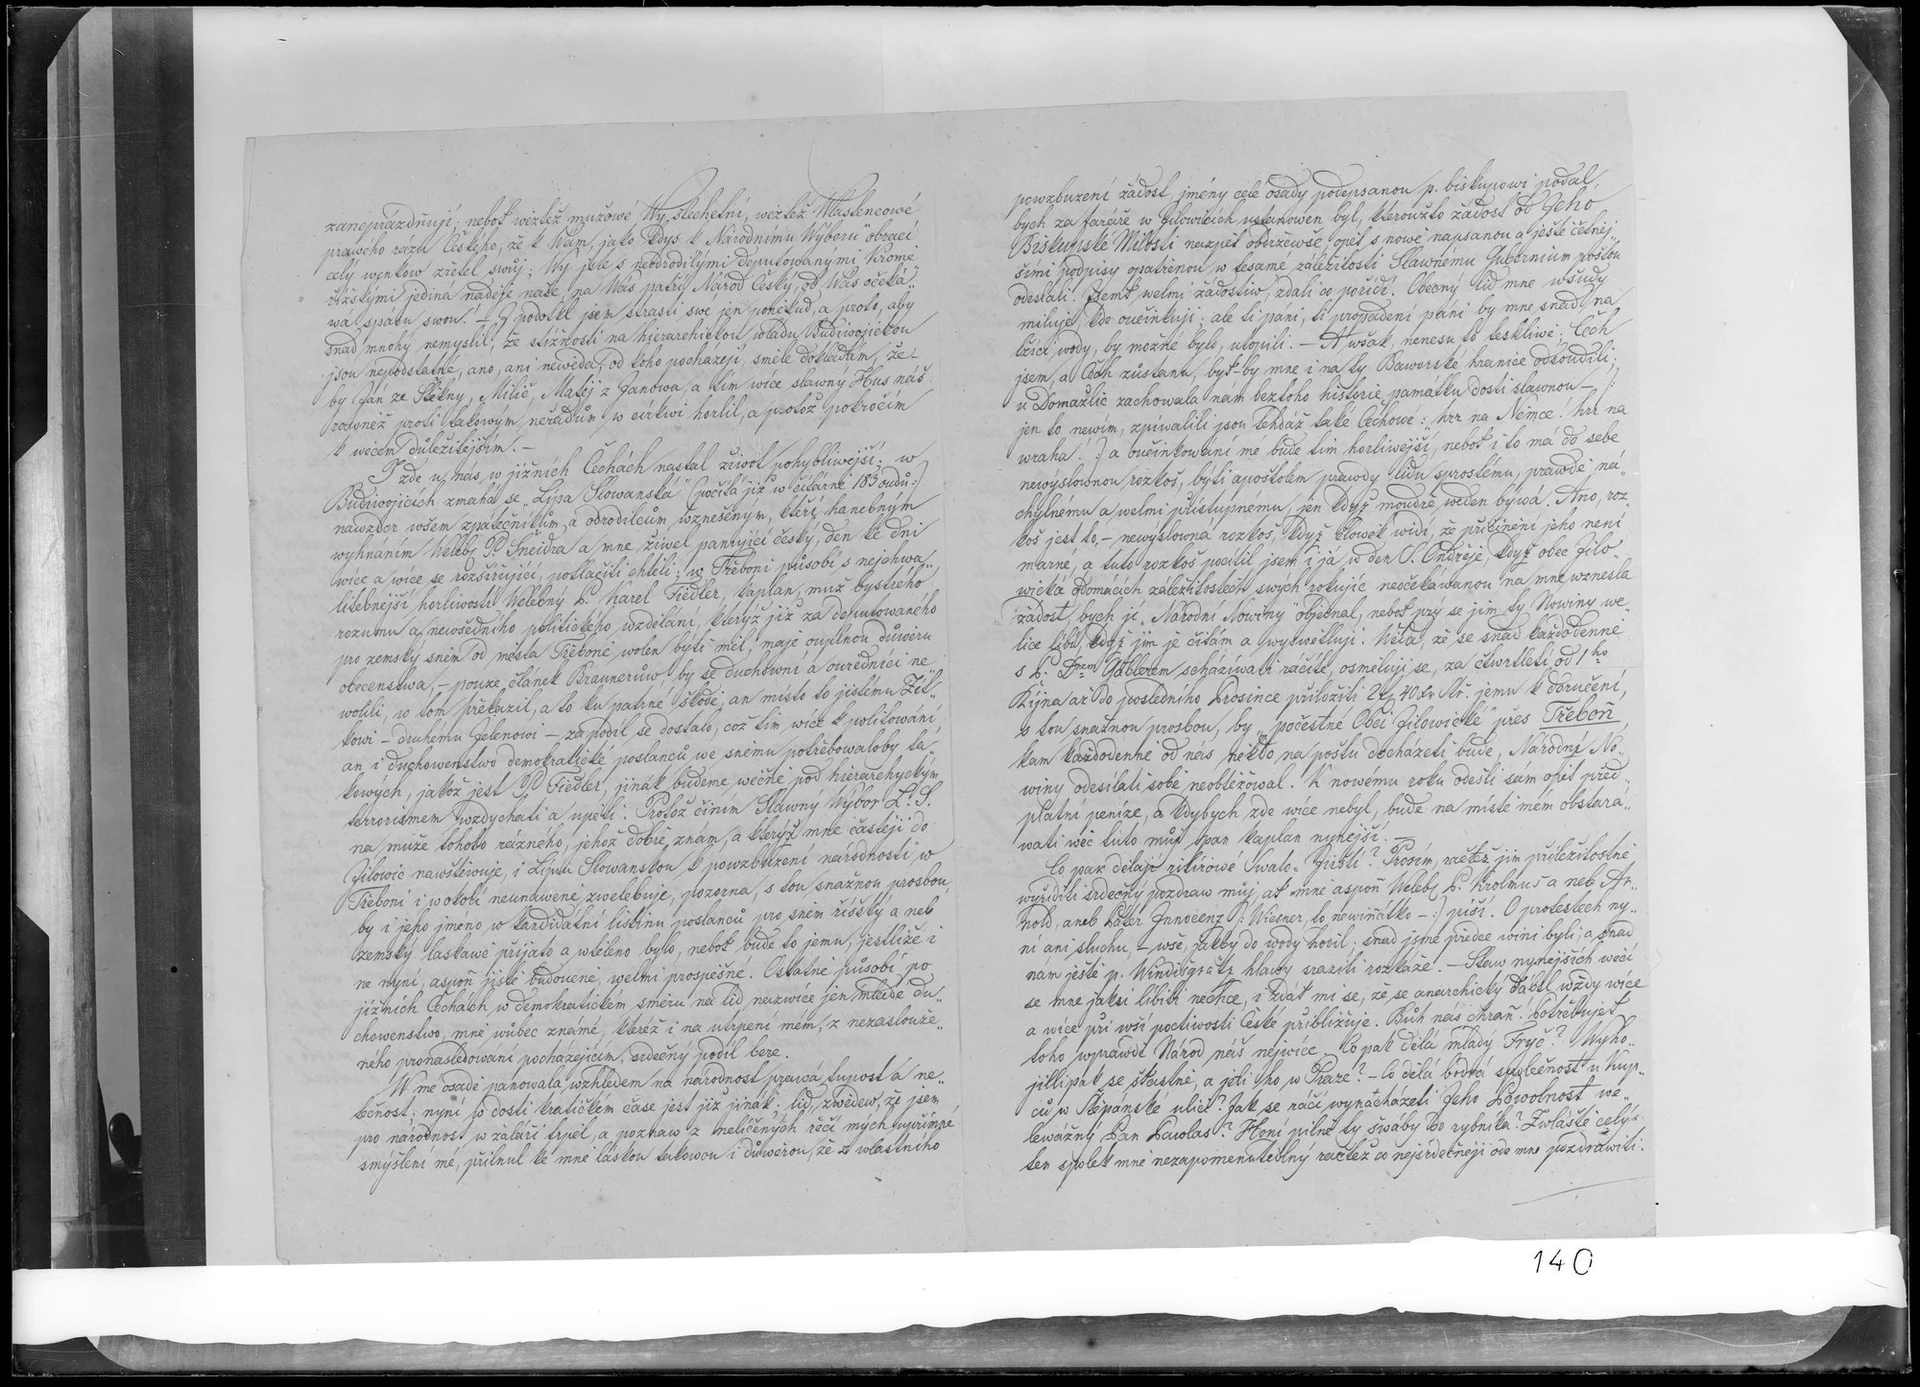 zaneprázdňují: neboť wěztež mužowé Wy šlechetní, wěztež Wlastencowé
prawého razu Českého, že k Wám, jako kdys k Národnímu Wýboru obrací
celý wenkow zřetel swůj; Wy jste s neodrodilými deputowanými Kromě
řížskými jediná naděje naše, na Wás patří Národ Český, od Wás očeká„
wá spásu swou. — I podotkl jsem strasti swé jen poněkud, a proto, aby
snad mnohý nemyslil, že stížnosti na hierarchickou wládu Budiwojickou
jsou nepodstatné, ano, ani newěda, od koho pocházejí, směle dokládám, že
by Ján ze Stěkny, Milič, Matěj z Janowa, a tím wíce slawný Hus náš
rowněž proti takowým neřádům w církwi horlil, a protož pokročím
k wěcem důležitějším. —
I zde u nás w jižních Čechách nastal žiwot pohybliwější; w
Budiwojicích zmáhá se „Lípa Slowanská" (počítá již w čítárně 183 oudů:)
nawzdor wšem zpátečníkům a odrodilcům wznešeným, kteří hanebným
wyhnáním Weleb. P. Šneidra a mne žiwel panující český, den ke dni
wíce a wíce se rozšiřující, potlačiti chtěli; w Třeboni působí s nejohwa„
litebnější horliwostí Welebný P. Karel Fiedler, kaplan, muž bystrého
rozumu a newšedního politického wzdělání, kterýž již za deputowaného
pro zemský sněm od města Třeboně wolen býti měl, maje ouplnou důwěru
obecenstwa, — pouze článek Braunerůw by se duchowní a ouředníci ne
wolili, w tom překazil, a to ku patrné škodě, an místo to jistému Žit„
kowi — druhému Jelenowi — za podíl se dostalo, což tím wíce k politowání
an i duchowenstwo demokratické poslanců we sněmu potřebowaloby ta„
kowých, jakož jest P. Fiedler, jinák budeme wěčně pod hierarchyckým
terrorismem wzdychati a upěti. Protož činím Slawný Wýbor L. S.
na muže tohoto rázného, jehož dobře znám, a kterýž mne častěji do
Jílowic nawštěwuje, i Lípu Slowanskou k powzbuzení národnosti w
Třeboni i w okolí neunaweně zwelebuje, pozorna, s tou snažnou prosbou,
by i jeho jméno w kandidátní listinu poslanců pro sněm říšský a neb
zemský laskawě přijato a wtěleno bylo, neboť bude to jemu, jestliže i
ne nyní, aspoň jistě budoucně, welmi prospěšné. Ostatně působí po
jižních Čechách w demokratickém směru na lid nazwíce jen mladé du„
chowenstwo, mně wůbec známé, kteréž i na utrpení mém, z nezaslouže„
ného pronásledowání pocházejícím, srdečný podíl bere.
W mé osadě panowala wzhledem na národnost prawá tupost a ne„
tečnost; nyní po dosti kratičkém čase jest již jinák: lid, zwěděw, že jsem
pro národnost w žaláři trpěl, a poznaw z nelíčených řečí mých upřímné
smýšlení mé, přilnul ke mně láskou takowou i důwěrou, že z wlastního
powzbuzení žádost, jmény celé osady podepsanou p. biskupowi podal,
bych za faráře w Jílowicích ustanowen byl, kteroužto žádost od Jeho
Biskupské Milosti nazpět obdržewše, opět s nowě napsanou a ještě četněj
šími podpisy opatřenou w tesamé záležitosti Slawnému Gubernium poštou
odeslali. Jsemť welmi žádostiw, zdali co pořídí. Obecný lid mne wšudy
miluje, kde oučinkuji: ale ti páni, ti propadení páni by mne snad na
lžíci wody, by možné bylo, utopili. — Awšak, nenesu to teskliwě; Čech
jsem, a Čech zůstanu, byť by mne i na ty Baworské hranice odsoudili;
u Domažlic zachowala nám beztoho historie památku dosti slawnou —, /:
jen to newím, zpíwalili jsou tehdáž také Čechowé: „hrr na Němce! hrr na
wraha! :/ a oučinkowání mé bude tím horliwější, neboť i to má do sebe
newýslownou rozkoš, býti apoštolem prawdy lidu sprostému, prawdě ná„
chylnému a welmi přístupnému, jen když moudře weden býwá. Ano, roz„
koš jest to, — newýslowná rozkoš, když člowěk widí, že přičinění jeho není
marné, a tuto rozkoš pocítil jsem i já, w den S. Ondřeje, když obec Jílo„
wická o domácích záležitostech swých rokujíc neočekáwanou na mne wznesla
žádost, bych jí „Národní Nowiny" objednal, neboť prý se jim ty Nowiny we„
lice líbí, když jim je čítám a wyswětluji. Wěda, že se snad každodenně
s P. Drem Gáblerem scházíwati ráčíte, osměluji se, za čtwrtletí od 1ho
Října až do posledního Prosince přiložiti 2 zl 40 kr Stř. jemu k doručení,
s tou snažnou prosbou, by „počestné Obci Jílowické" přes Třeboň,
kam každodenně od nás někdo na poštu docházeti bude, Národní No„
winy odesílati sobě neobtěžowal. K nowému roku odešli sám opět před„
platní peníze, a kdybych zde wíce nebyl, bude na místě mém obstará„
wati wěc tuto můj span kaplan nynější. —
Co pak dělají rytířowé Swato-Jirští? Prosím, račtež jim příležitostně
wyříditi srdečný pozdraw můj, ať mně aspoň Weleb. P. Krolmus a neb Ar„
nold, aneb Páter Innocenz /: Wiesner, to newiňátko — :/ píší. O protestech ny„
ní ani sluchu, — wše, jakby do wody hodil; snad jsme předce winni byli, a snad
nám ještě p. Windišgrätz hlawy sraziti rozkáže. — Staw nynějších wěcí
se mne jaksi líbiti nechce, i zdát mi se, že se anarchický ďábel wždy wíce
a wíce při wší poctiwosti České přibližuje. Bůh nás chraň! Potřebujeť
toho wprawdě Národ náš nejwíce. Co pak dělá mladý Fryč? Wyho„
jillipak se šťastně, a jeli ho w Praze? — Co dělá bodrá společnost u Kup„
ců w Štěpánské ulici? Jak se ráčí wynacházeti Jeho Powolnost we„
lewážný Pan Pawlas? Honí pilně ty šwáby do rybníka? Zwláště celý
ten spolek mně nezapomenutedlný račtež co nejsrdečněji ode mne pozdrawiti.
140